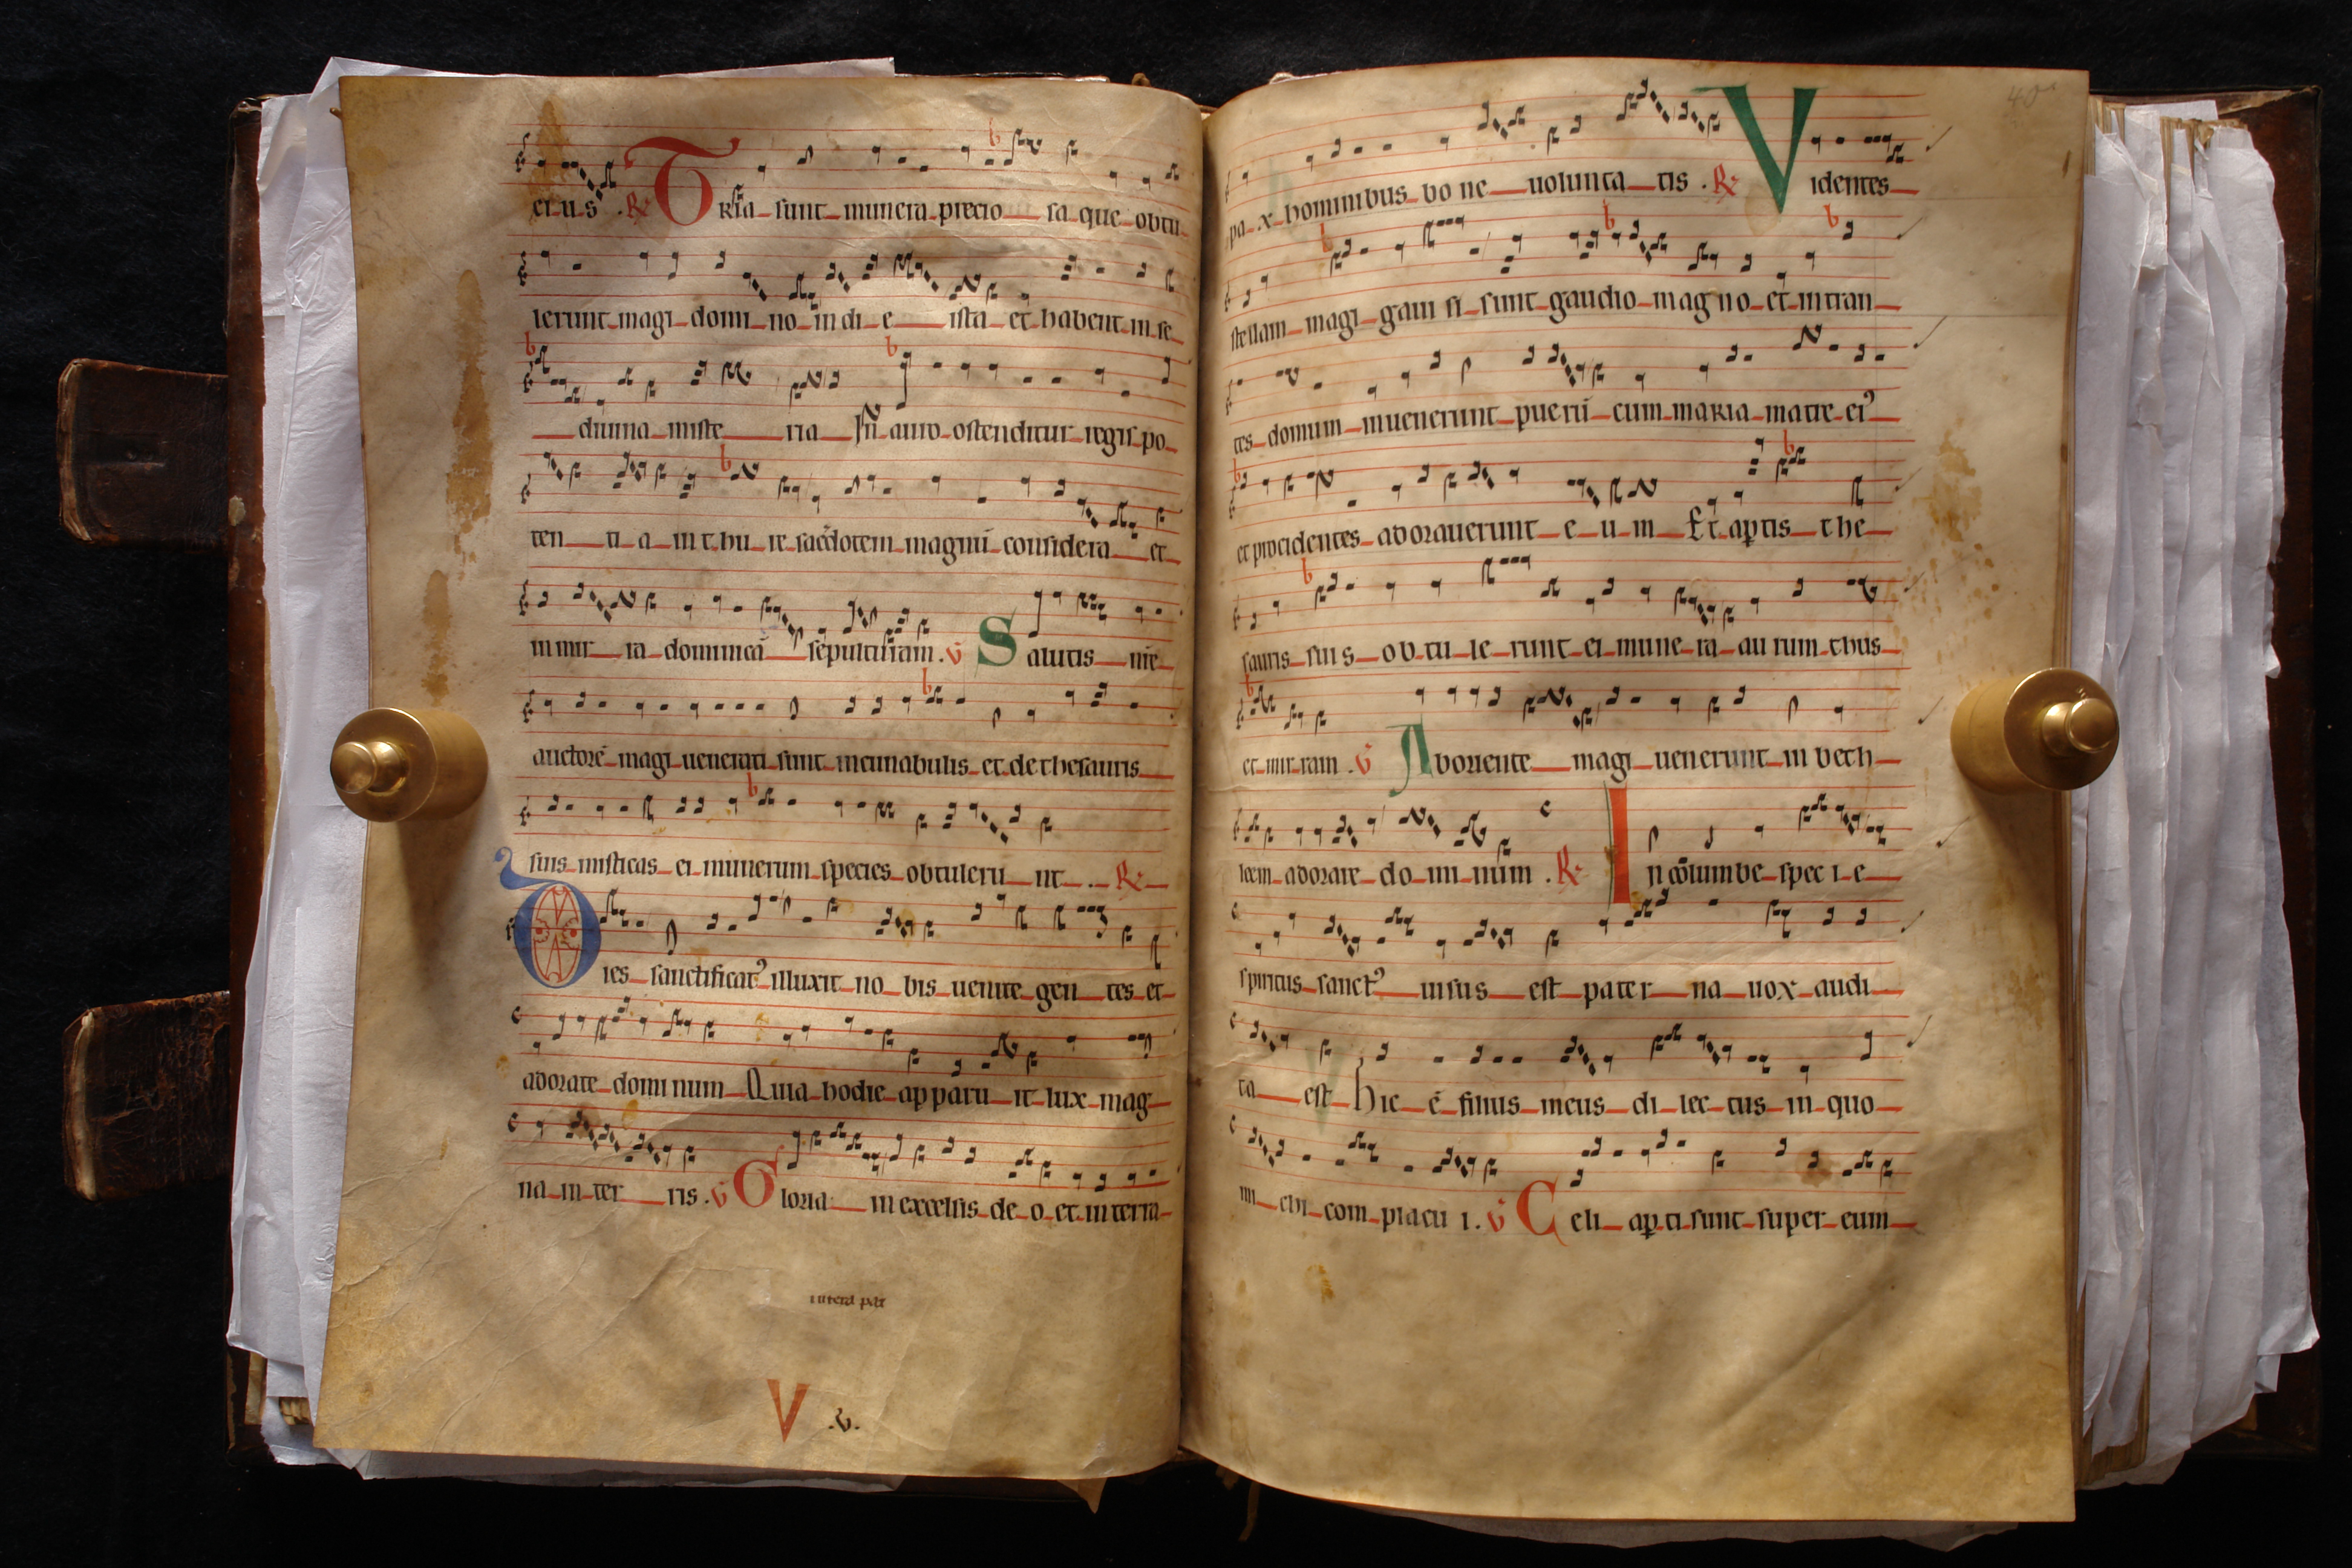 ei u s . R Tria sunt munera precio sa que obtu
lerunt magi domi no in di e ista et habent in se
diuina miste ria In auro ostenditur regis po
ten ti a in thu re sacdotem magnū considera et
in mir ra dominicā sepulturam . V Salutis nrē
auctorē magi uenerati sunt in cunabulis et de thesauris
suis misticas ei munerum species obtuleru nt . R
Dies sanctificatꝰ illuxit no bis uenite gen tes et
adorate domi num Quia hodie ap paru it lux mag
na in ter ris . V Gloria in excelsis de o et in terra
intera par
V .v.
pa x hominibus bo ne uolunta tis . R Videntes
stellam magi gaui si sunt gaudio mag no et intran
tes domum inuenerunt puerū cum maria matre eiꝰ
et procidentes adorauerunt e u m Et aptis the
sauris suis ob tu le runt ei mune ra au rum thus
et mir ram . V Ab oriente magi uenerunt in beth
leem adorare do mi num . R In columbe spec i e
spiritus sanctꝰ uisus est pater na uox audi
ta est Hic ē filius meus di lec tus in quo
mi chi com placu i . V Celi apti sunt super eum